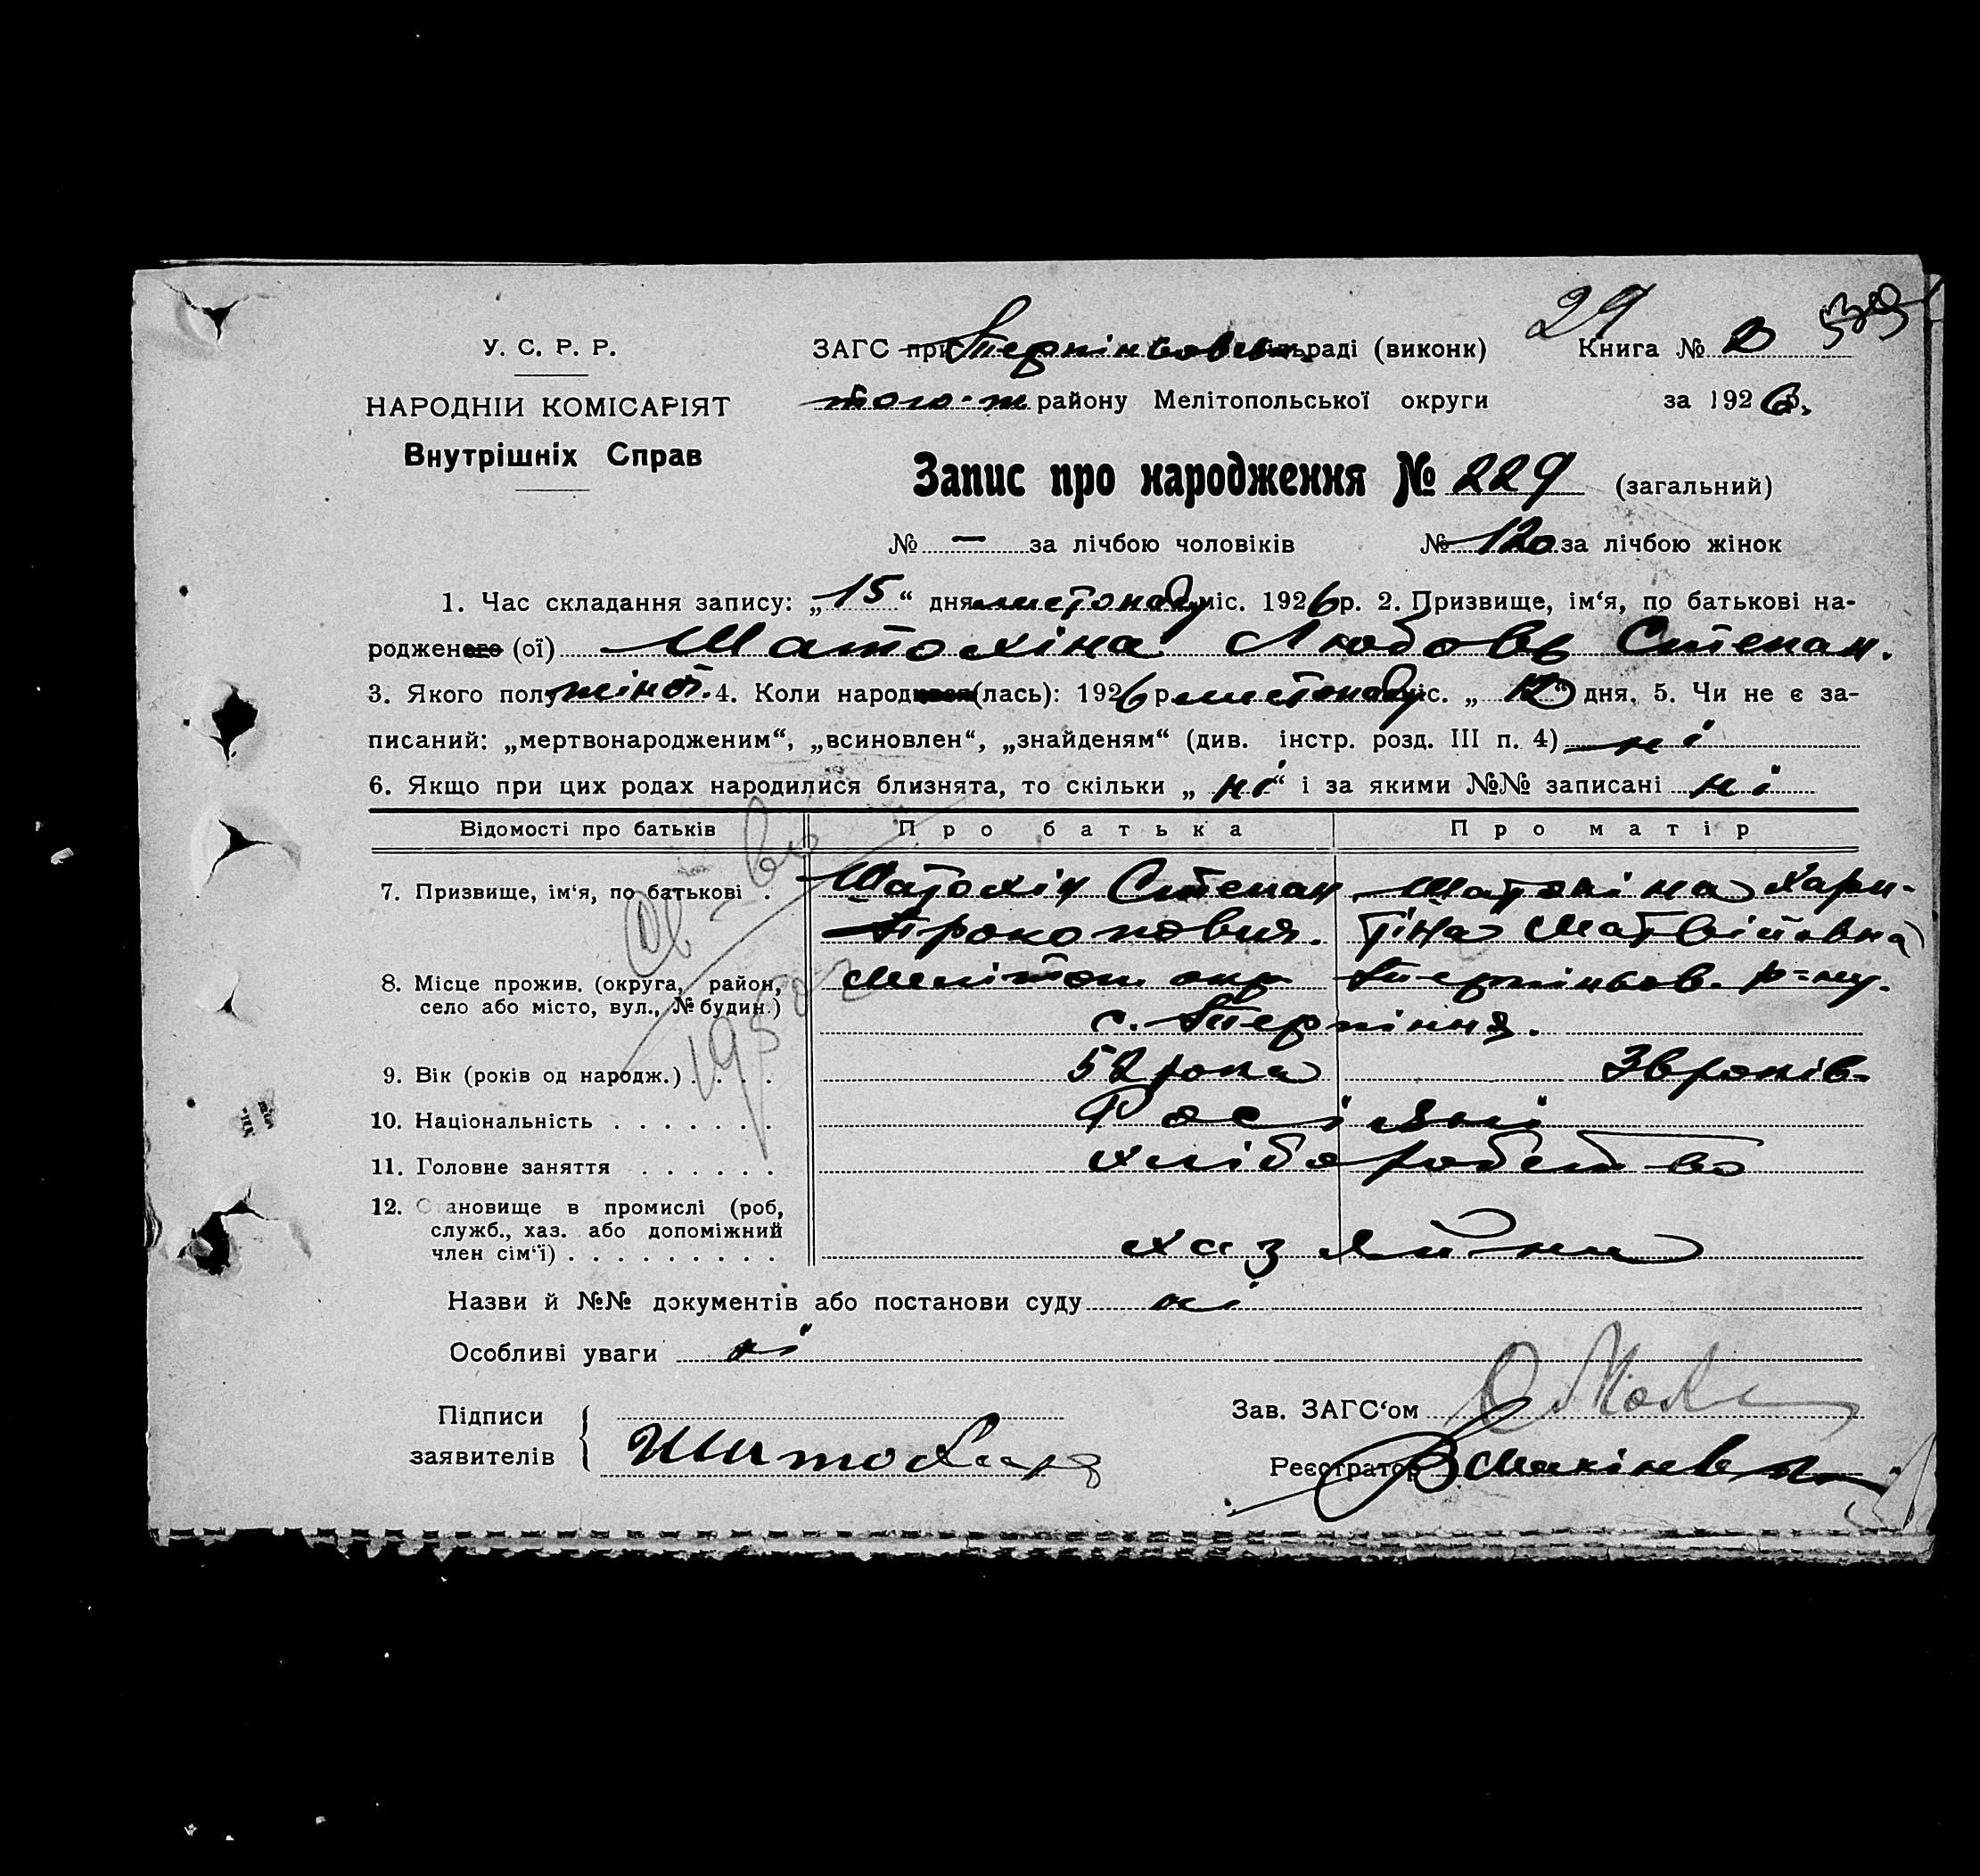 29
У. С. Р. Р.
ЗАГС при Терпіньовськ. сільраді (виконк) Книга № 2
того-ж району Мелітопольської округи за 1926 р.
НАРОДНІЙ КОМІСАРІЯТ
Внутрішніх Справ
Запис про народження № 229 (загальний)
№ — за лічбою чоловіків № 120 за лічбою жінок
1. Час складання запису: „15“ дня листопаду міс. 1926 р. 2. Призвище, ім‘я, по батькові на-
родженого (ої) Шатохіна Любовь Степан.
3. Якого полу жіноч. 4. Коли народився (лась): 1926 р листопаду міс. „12“ дня. 5. Чи не є за-
писаний: „мертвонародженим“, „всиновлен“, „знайденям“ (див. інстр. розд. III п. 4) ні
6. Якщо при цих родах народилися близнята, то скільки „ні“ і за якими №№ записані ні
Відомості про батьків Про батька Про матір
7. Призвище, ім‘я, по батькові . Шатохін Степан Шатохіна Хари-
Прокопович. тіна Матвійовна
8. Місце прожив. (округа, район, Меліттоп. окр Терпіньов. р=ну.
село або місто, вул., № будин.) с. Терпіння.
9. Вік (років од народж.) . . . . 52 рока 36 років
10. Національність . . . . . . . Росіяні
11. Головне заняття . . . . . . хліборобство
12. Становище в промислі (роб,
служб., хаз. або допоміжний
член сім‘ї) . . . . . . . . . хазяйни
Назви й №№ документів або постанови суду ні
Особливі уваги ні
Підписи
заявителів Шатохин
Зав. ЗАГС‘ом
Реєстратор